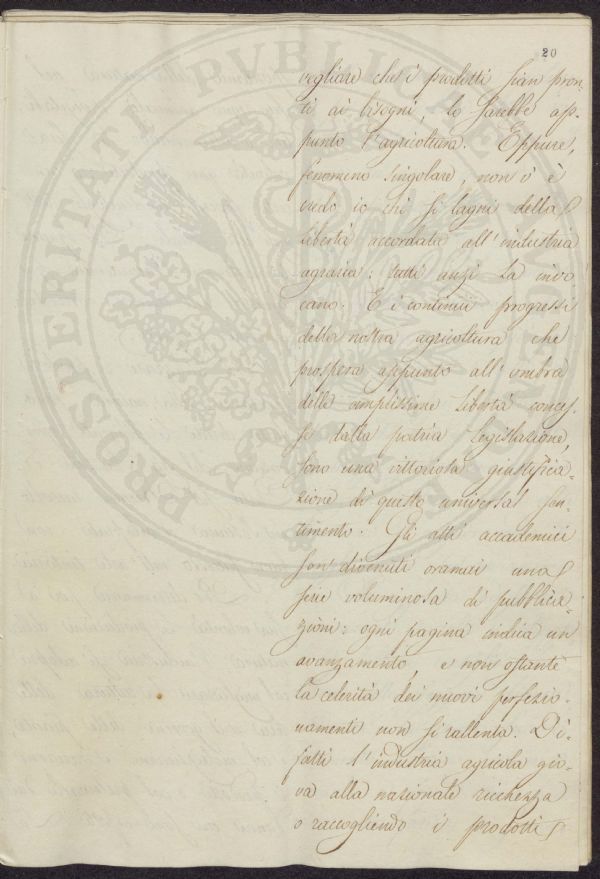 20
vegliare che i prodotti sian pron-
ti ai bisogni, lo sarebbe ap-
punto l'agricoltura. Eppure,
fenomeno singolare, non v'è
credo io chi si lagni della
libertà accordata all'industria
agraria: tutti anzi la invo
cano. E i continui progressi
della nostra agricoltura che
prospera appunto all'ombra
delle ampiissime libertà conces-
se dalla patria legislazione,
sono una vittoriosa giustifica-
zione di questo universal sen-
timento. Gli atti accademici
son divenuti oramai una
serie voluminosa di pubblica-
zioni: ogni pagina indica un
avanzamento e non ostante
la celerità dei nuovi perfezio-
namenti non si rallenta. Di-
fatti l'industria agricola gio-
va alla nazionale ricchezza
o raccogliendo i prodotti
PROSPERITATI PVBLICAE